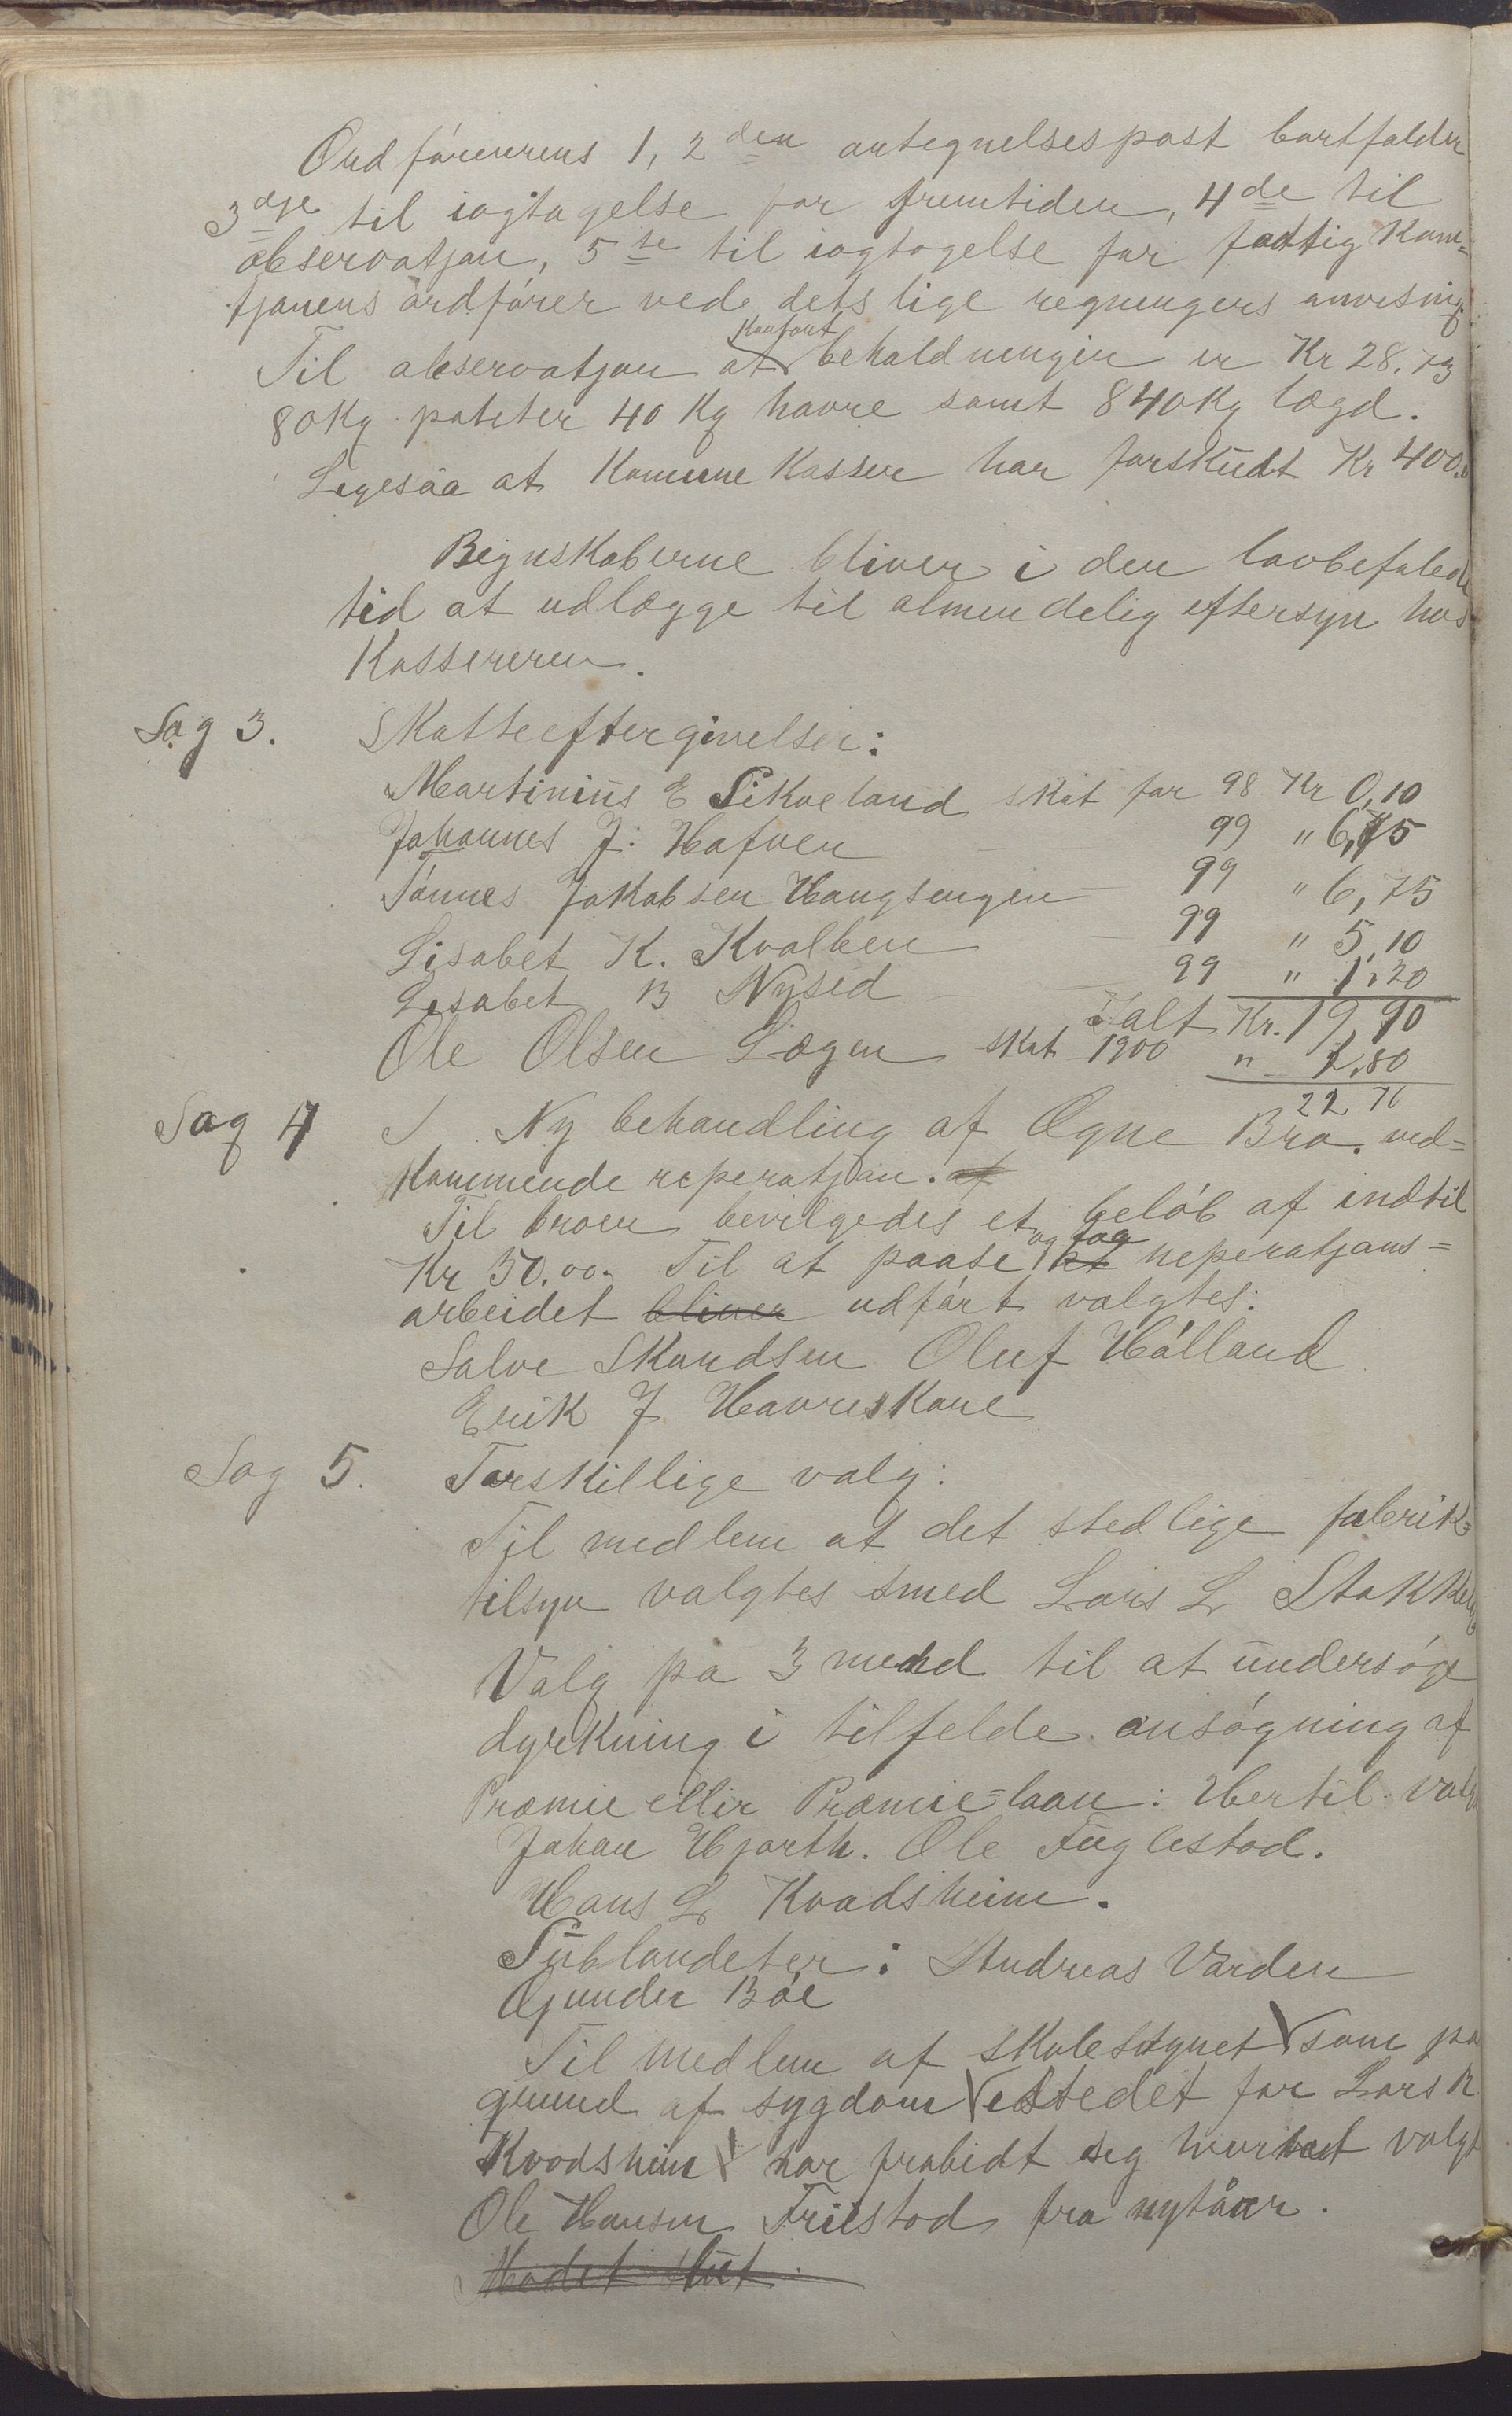 Ordførerens 1, 2den antegnelsespost bortfalder
3dje til iagtagelse for fremtiden, 4de til
observatjon, 5te til iagtagelse for fattig Kom=
tjonens ordfører ved dets lige regningers anvisning.
Til observatjon at Kontant behold ningin er Kr 28.73
80 Kg poteter 40 Kg havre samt 840 Kg lægd.
Ligesaa at Komune Kassen har forskudt Kr 400.
Regnskaberne bliver i den lovbefalede
tid at udlægge til almendelig eftersyn hos
Kassereren.
Sag 3. Skatteeftergivelser:
Martinius E Sikveland skat for 98 Kr 0,10
Johannes J. Hafven 99 " 6,75
Tønnes Jakobsen Haugsengen 99 " 6,75
Lisabet K. Kvalben 99 " 5,10
Lisabet B Nysed 99 " 1,20
Ialt Kr. 19,90
Ole Olsen Lægen skat 1900 " 2,80
22 70
Sag 4 Ny behandling af Ogne Bro. ved=
Kommende reperatjon. af
Til broen bevilgedes et beløb af indtil
Kr 50.00. Til at paase og faa at reperatjons=
arbeidet bliver udført valgtes:
Salve Skandsen Oluf Hålland
Erik J Havreskare
Sag 5. Forskillige valg:
Til medlem at det stedlige fabrik=
tilsyn valgtes smed Lars L Stokke
Valg pa 3 mend til at undersøge
dyrkning i tilfelde ansøgning af
Præmie ellir Præmie=laan: Hertil valg
Johan Hjorth. Ole Fuglestad.
Hans L Kvadsheim.
Sublandeter: Andreas Varden
Ogunder Bøe
Til medlem af skolestyret som pa
grund af sygdom istedet for Lars R
Kvodsheim har frabidt seg hverbat valgt
Ole Hansen Friestad fra nytåar.
Modet slut